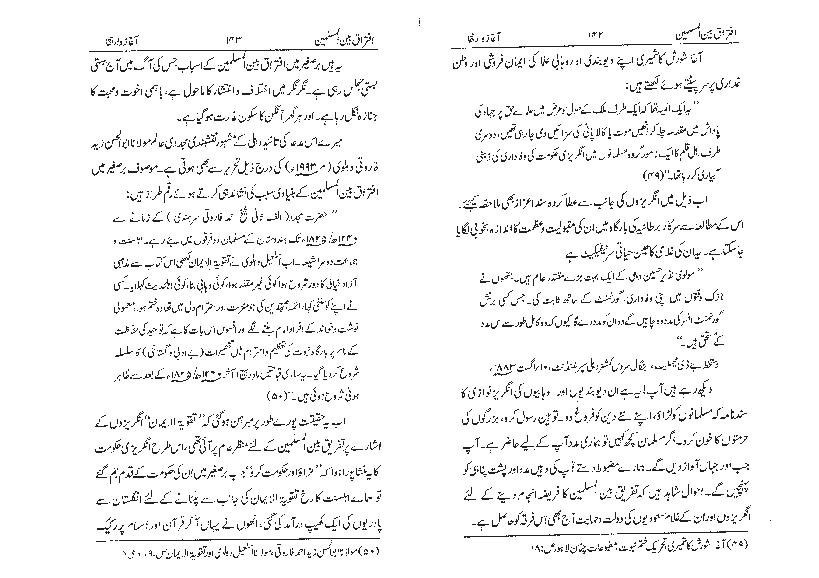 افتراق بین المسلمین ۱۴۲ آغاز و ارتقا
آغا شورش کاشمیری اپنے دیوبندی اور وہابی علما کی ایمان فروشی اور وطن
غداری پر سر پیٹتے ہوئے لکھتے ہیں:
"یہ ایک المیہ تھا کہ ایک طرف ملک کے طول و عرض میں علمائے حق پر جہاد کی
پاداش میں مقدمے چلا کر انھیں موت یا کالا پانی کی سزائیں دی جا رہی تھیں، دوسری
طرف اہل قلم کا ایک نامور گروہ مسلمانوں میں انگریزی حکومت کی وفاداری کی ذہنی
آبیاری کر رہا تھا۔" (۴۹)
اب ذیل میں انگریزوں کی جانب سے عطا کردہ سند اعزاز بھی ملاحظہ کیجیے۔
اس کے مطالعہ سے سرکار برطانیہ کی بارگاہ میں ان کی مقبولیت و عظمت کا اندازہ بخوبی لگایا
جا سکتا ہے۔ یہ ان کی غلامی کا عین حیاتی سرٹیفکیٹ ہے
"مولوی نذیر حسین دہلی کے ایک بہت بڑے مقتدر عالم ہیں۔ جنھوں نے
نازک وقتوں میں اپنی وفاداری، گورنمنٹ کے ساتھ ثابت کی۔ جس کسی برٹش
گورنمنٹ افسر کی مدد وہ چاہیں گے وہ ان کو مدد دے گا کیوں کہ وہ کامل طور سے اس مدد
کے مستحق ہیں۔"
دستخط جے ڈی بنگال سروس کمشنر دہلی سپرنٹنڈنٹ، ۱۰/اگست ۱۸۸۳ء
دیکھ رہے ہیں آپ! یہ ہے ان دیوبندیوں اور وہابیوں کی انگریز نوازی کا
سند نامہ کہ مسلمانوں کو لڑاؤ، اپنے نئے دین کو فروغ دو۔ توہین رسول کرو، بزرگوں کی
حرمتوں کا خون کرو۔ اگر مسلمان کچھ کہیں تو ہماری مدد آپ کے لیے حاضر ہے۔ آپ
جب اور جہاں آواز دیں گے۔ ہمارے مضبوط دستے توپ کی وہیں مدد اور پشت پناہی کو
پہنچیں گے۔ حوال شاہد ہیں کہ تفریق بین المسلمین کا فریضہ انجام دینے کے لئے
انگریزوں اور ان کے غلام سعودیوں کی دولت و حمایت آج بھی اس فرقہ کو حاصل ہے۔
(۴۹) آغا شورش کاشمیری، تحریک ختم نبوت، مطبوعات چٹان لاہور ص: ۱۸
افتراق بین المسلمین ۱۴۳ آغاز و ارتقا
یہ ہیں برصغیر میں افتراق بین المسلمین کے اسباب جس کی آگ میں آج بستی
بستی جھلس رہی ہے۔ نگر نگر میں اختلاف و انتشار کا ماحول ہے، باہمی اخوت و محبت کا
جنازہ نکل رہا ہے۔ اور ہر گھر آنگن کا سکون غارت ہو گیا ہے۔
میرے اس مدعا کی تائید دہلی کے مشہور نقشبندی مجددی عالم مولانا ابوالحسن زید
فاروقی دہلوی (م ۱۹۹۳ء) کی درج ذیل تحریر سے بھی ہوتی ہے۔ موصوف برصغیر میں
افتراق بین المسلمین کے بنیادی سبب کی نشاندہی کرتے ہوئے رقم طراز ہیں:
"حضرت مجدد (الف ثانی شیخ احمد فاروقی سرہندی) کے زمانے سے
۱۲۴۰ھ/۱۸۲۵ء تک ہندوستان کے مسلمان دو فرقوں میں بٹے رہے۔ اہلسنت و
جماعت دوسرا شیعہ۔ اب اسمٰعیل دہلوی نے تقویۃ الایمان لکھی اس کتاب سے مذہبی
آزاد خیالی کا دور شروع ہوا کوئی غیر مقلد ہوا، کوئی وہابی بنا، کوئی اہل حدیث کہلایا۔ کسی
نے اپنے کو سلفی کہا، ائمہ مجتہدین کی جو منزلت اور احترام دل میں تھا وہ ختم ہوا، معمولی
نوشت و خواند کے افراد امام بننے لگے اور افسوس اس بات کا ہے کہ توحید کی حفاظت
کے نام پر بارگاہ نبوت کی تعظیم و احترام میں تقصیرات (بے ادبی و گستاخی) کا سلسلہ
شروع کر دیا گیا۔ یہ ساری قباحتیں ماہ ربیع الآخر ۱۲۴۰ھ/۱۸۲۵ء کے بعد سے ظاہر
ہونی شروع ہوئی ہیں۔" (۵۰)
اب یہ حقیقت پورے طور پر مبرہن ہو گئی کہ "تقویۃ الایمان" انگریزوں کے
اشارے پر تفریق بین المسلمین کے لئے منظر عام پر آئی تھی، اس طرح انگریزی حکومت
کا یہ منشا پورا ہوا کہ "لڑاؤ اور حکومت کرو"۔ جب برصغیر میں ان کی حکومت کے قدم جم گئے
تو علمائے اہلسنت کا رخ تقویۃ الایمان کی جانب سے ہٹانے کے لئے انگلستان سے
پادریوں کی ایک کھیپ درآمد کی گئی، انھوں نے یہاں آ کر قرآن اور اسلام پر رکیک
(۵۰) مولانا ابوالحسن زید احمد فاروقی، مولانا اسمٰعیل دہلوی اور تقویۃ الایمان ص۔ ۹، دہلی